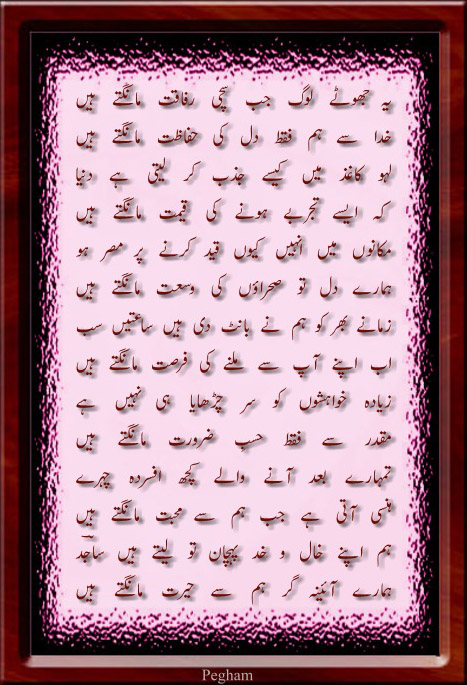 یہ جھوٹے لوگ جب سچی رفاقت مانگتے ہیں
خدا سے ہم فقط دل کی حفاظت مانگتے ہیں
لہو کاغذ میں کیسے جذب کر لیتی ہے دنیا
کہ ایسے تجربے ہونے کی قیمت مانگتے ہیں
مکانوں میں انہیں کیوں قید کرنے پر مصر ہو
ہمارے دل تو صحراؤں کی وسعت مانگتے ہیں
زمانے بھر کو ہم نے بانٹ دی ہیں ساعتیں سب
اب اپنے آپ سے ملنے کی فرصت مانگتے ہیں
زیادہ خواہشوں کو سر چڑھایا ہی نہیں ہے
مقدر سے فقط حسبِ ضرورت مانگتے ہیں
تمہارے بعد آنے والے کچھ افسردہ چہرے
ہنسی آتی ہے جب ہم سے محبت مانگتے ہیں
ہم اپنے خال و خد پہچان تو لیتے ہیں ساجد
ہمارے آئینہ گر ہم سے حیرت مانگتے ہیں
Pegham